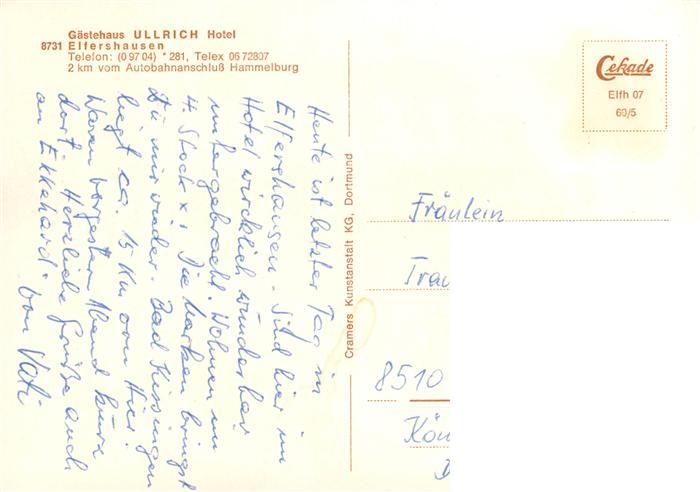 Gästehaus ULLRICH Hotel
8731 Elfershausen
Telefon: (0 97 04) * 281, Telex 06 72807
2 km vom Autobahnanschluß Hammelburg
Heute ist letzter Tag in
Elfershausen. Sind hier im
Hotel wirklich wunderbar
untergebracht. Wohnen im
4. Stock x. Die Marken bringst
Du mir wieder. Bad Kissingen
liegt ca. 15 Km von Hier.
Waren vorgestern Abend kurz
dort. Herzliche Grüße auch
an Ekkehard. von Vati
Cramers Kunstanstalt KG, Dortmund
Cekade
Elfh 07
60/5
Fräulein
Trau
8510